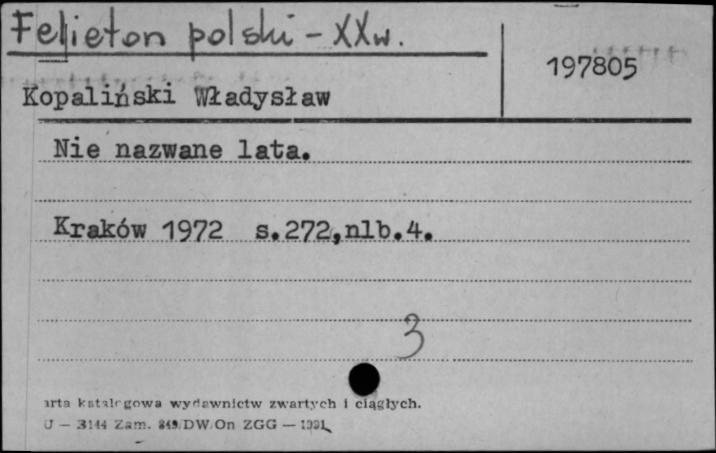 Feljeton polski - XXw.
197805
Kopaliński Władysław
Nie nazwane lata.
Kraków 1972 s.272,nlb.4.
3
arta katalogowa wydawnictw zwartych i ciągłych.
U — 3144 Zam. DW On ZGG —